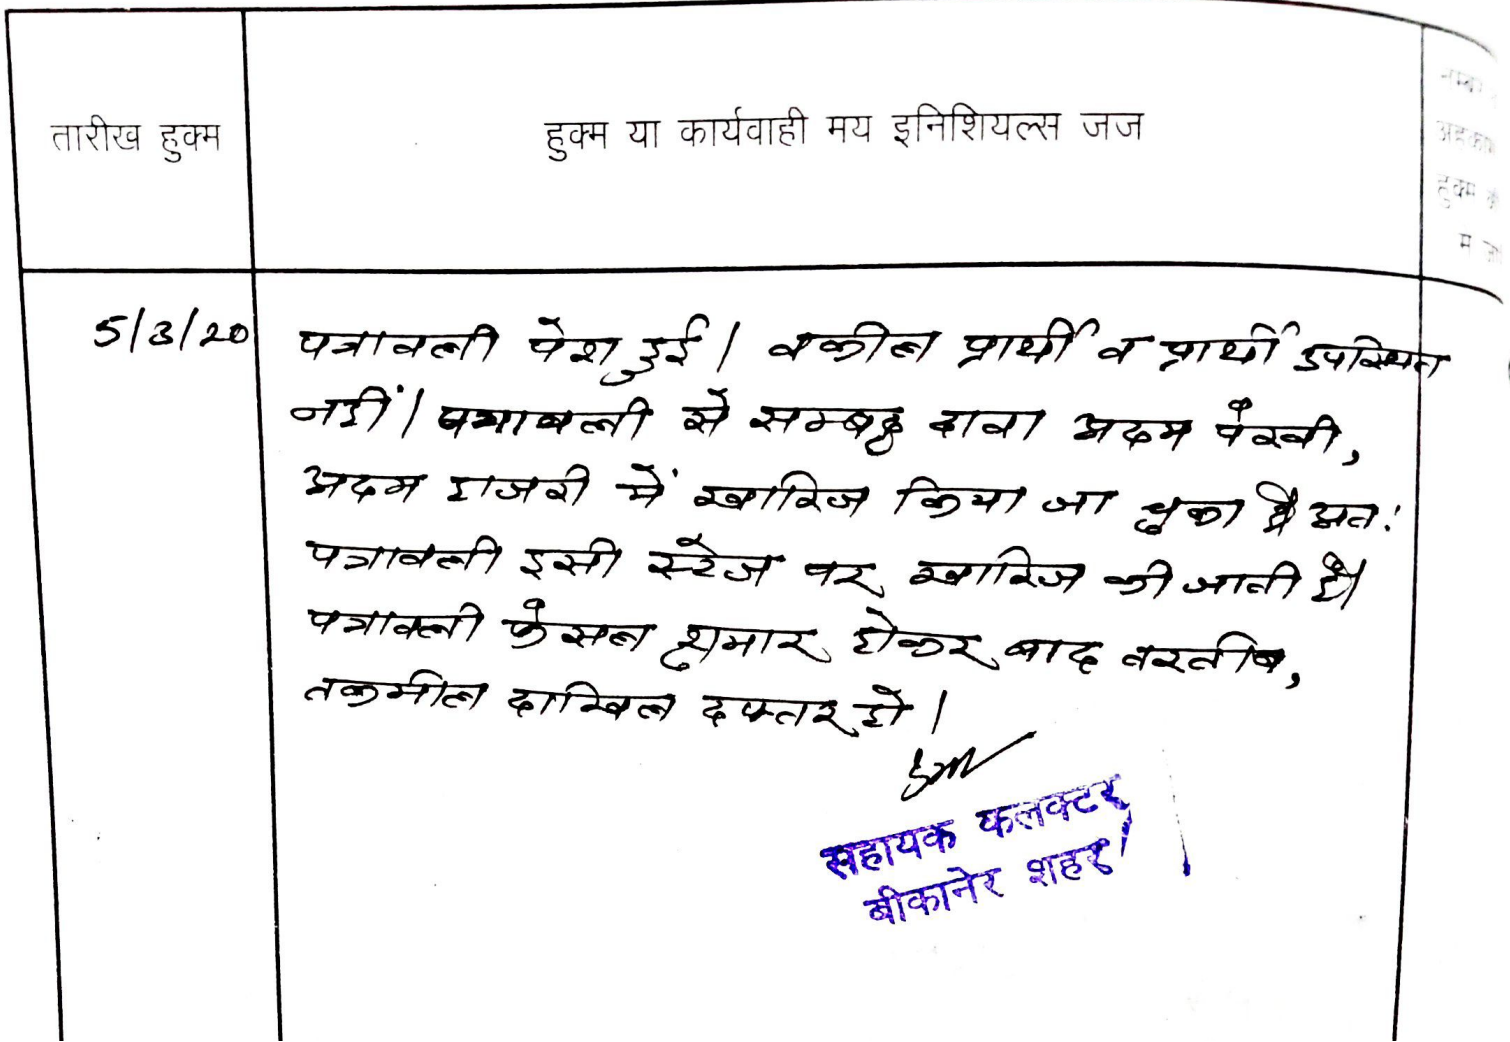 तारीख हुक्म
हुक्म या कार्यवाही मय इनिशियल्स जज
नम्बर
अहकाम
हुक्म
म
5/3/20
पत्रावली पेश हुई। वकील प्रार्थी व प्रार्थी उपस्थित
नहीं। पत्रावली से सम्बद्ध दावा अदम पैरवी,
अदम हाजरी में खारिज किया जा चुका है अतः
पत्रावली इसी स्टेज पर खारिज की जाती है।
पत्रावली फैसल शुमार होकर बाद तरतीब,
तकमील दाखिल दफ्तर हो।
सहायक कलक्टर
बीकानेर शहर